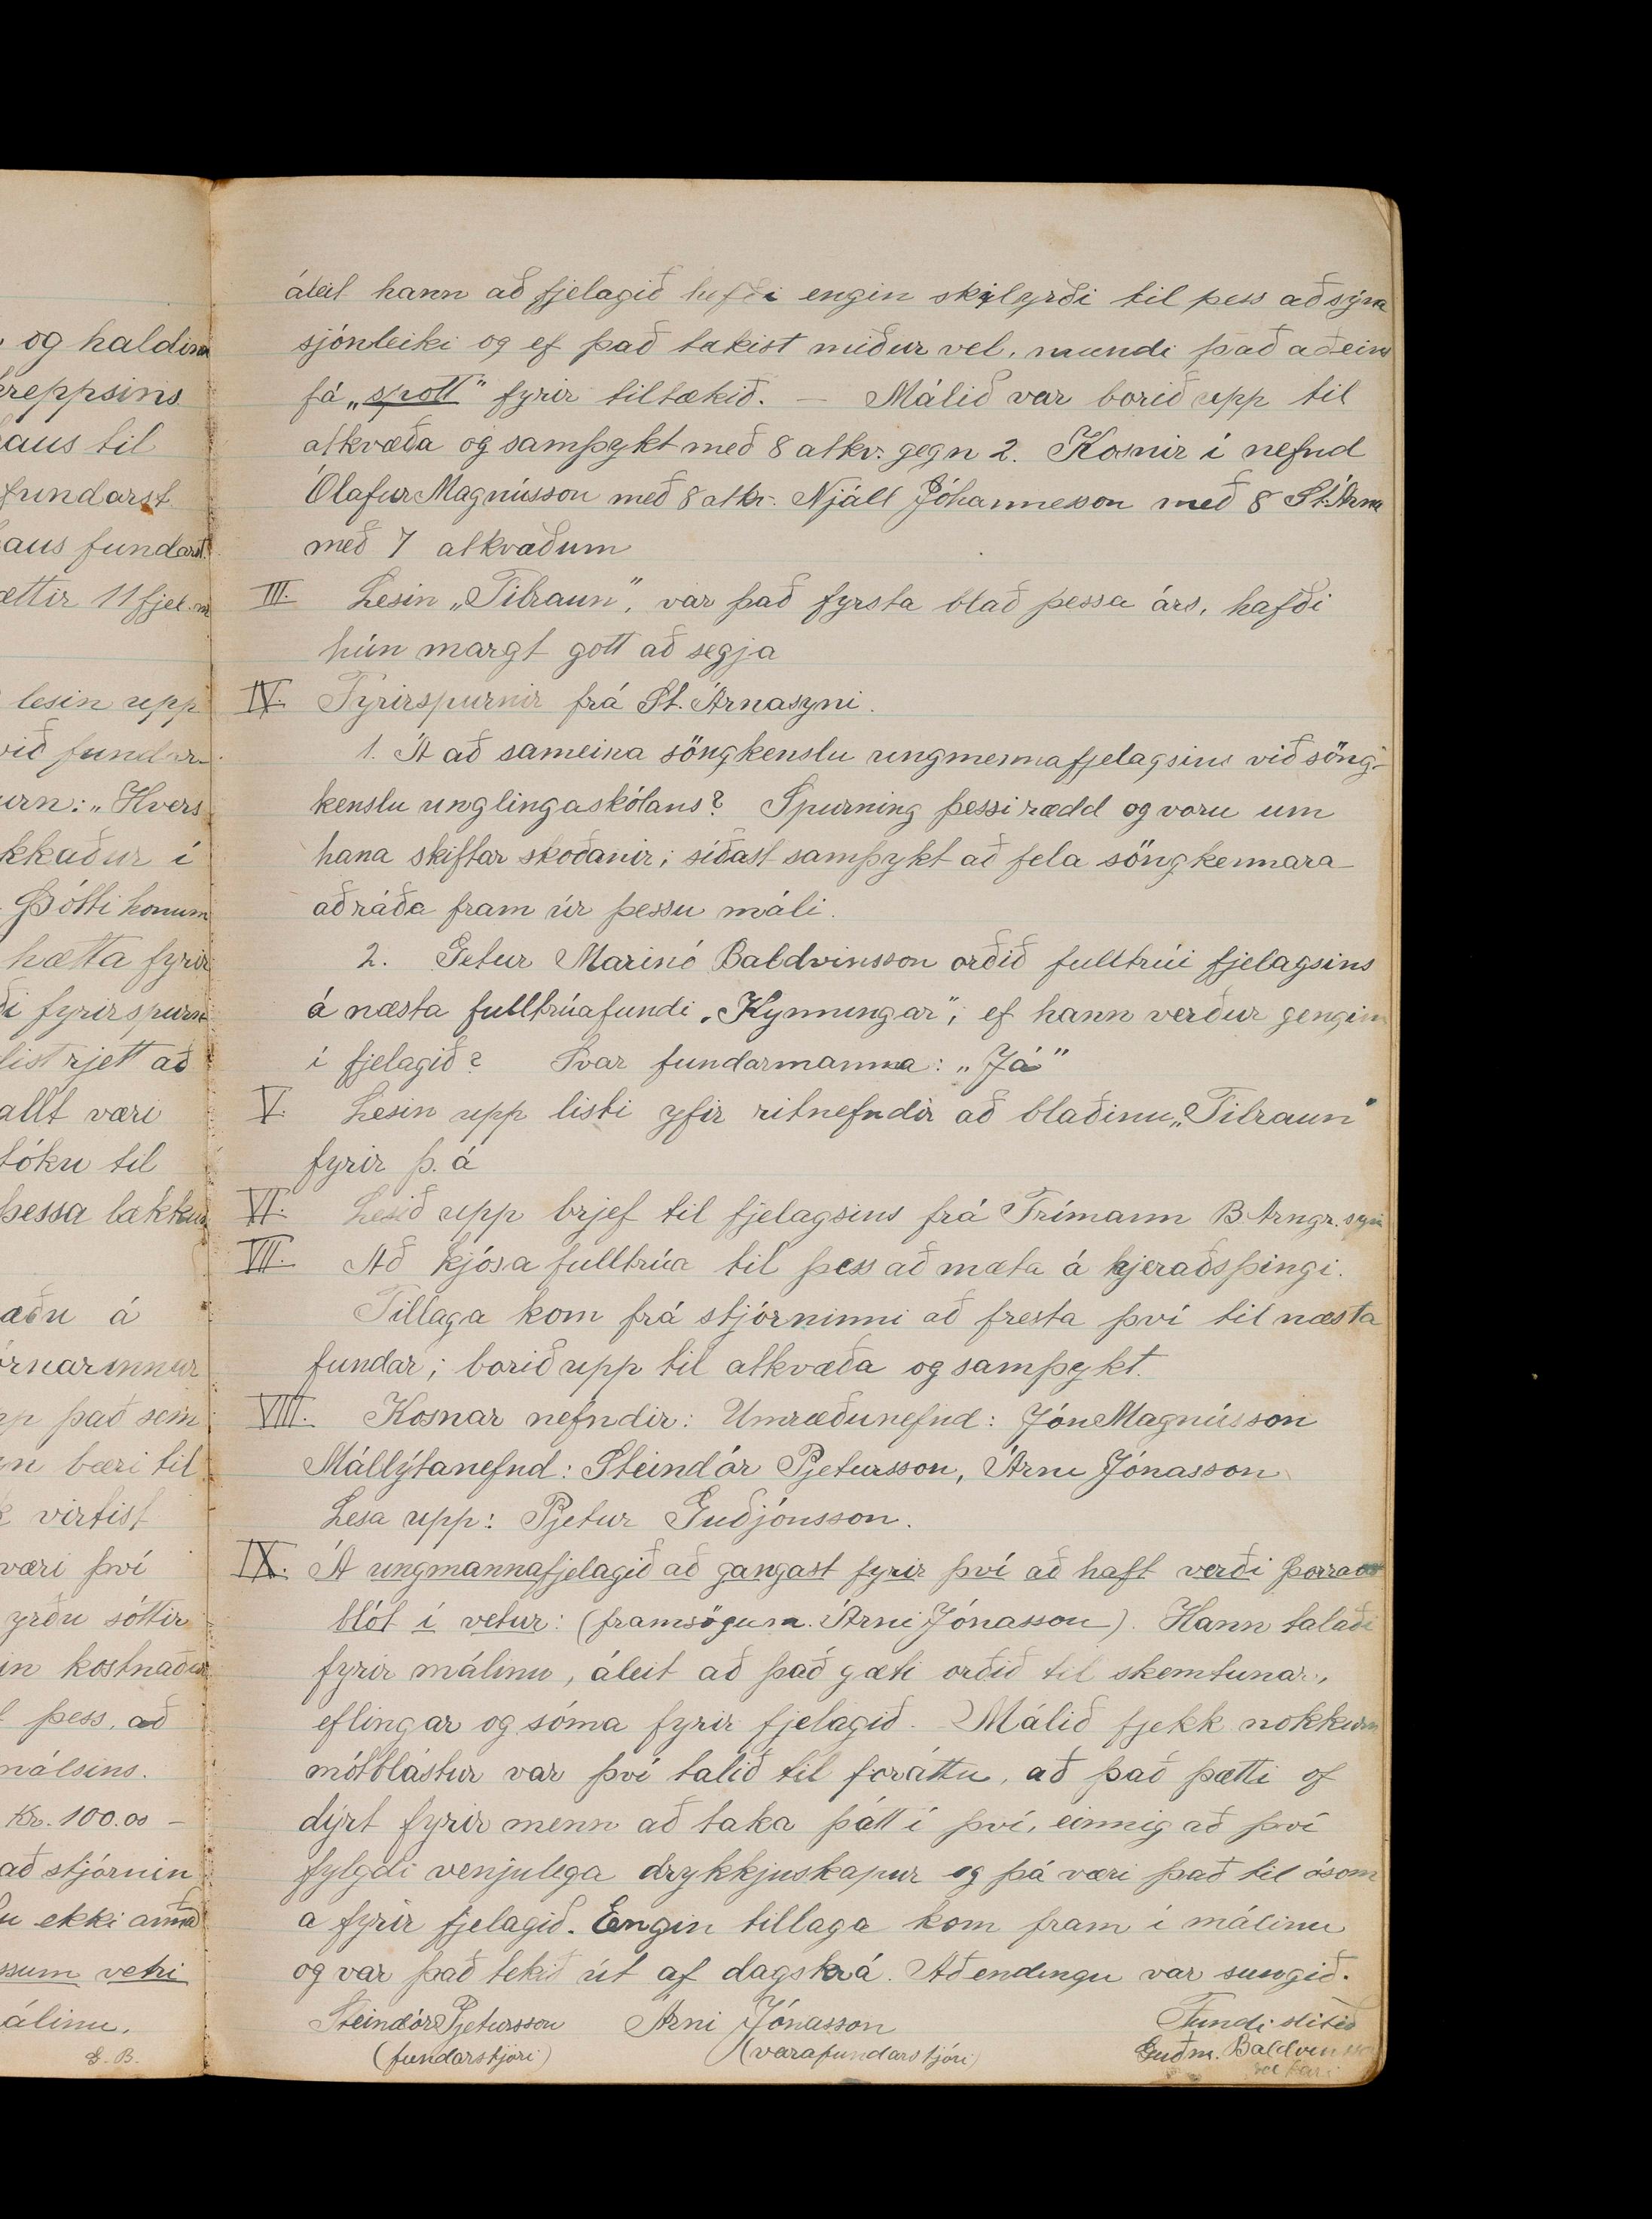 og haldinn
hreppsins
haus til
fundarst.
haus fundarst.
mættir 11 fjel.m
lesin upp
við fundar-
urn: „Hvers
kkaður í
Þótti honum
hætta fyrir
fyrirspurn
list rjett að
allt væri
tóku til
þessa lækkun
æðu á
órnarinnar
upp það sem
bæri til
virtist
væri því
yrðu sóttir
kostnaður
þess, að
málsins.
Kr. 100.00 —
að stjórnin
ekki annað
ssum vetri
álinu.
G. B.
áleit hann að fjelagið hefði engin skilyrði til þess að sýna
sjónleiki og ef það takist miður vel, mundi það aðeins
fá „spott" fyrir tiltækið. — Málið var borið upp til
atkvæða og samþykt með 8 atkv. gegn 2. Kosnir í nefnd
Ólafur Magnússon með 8 atkv. Njáll Jóhannesson með 8 St. Árna
með 7 atkvæðum
III. Lesin „Tilraun", var það fyrsta blað þessa árs, hafði
hún margt gott að segja
IV. Fyrirspurnir frá St. Árnasyni.
1. Á að sameina söngkenslu ungmennafjelagsins við söng-
kenslu unglingaskólans? Spurning þessi rædd og voru um
hana skiftar skoðanir; síðast samþykt að fela söngkennara
að ráða fram úr þessu máli.
2. Getur Marinó Baldvinsson orðið fulltrúi fjelagsins
á næsta fulltrúafundi „Kynningar", ef hann verður gengin
í fjelagið? Svar fundarmanna: „Já"
V. Lesin upp listi yfir ritnefndir að blaðinu „Tilraun"
fyrir þ. á
VI. Lesið upp brjef til fjelagsins frá Frímann B. Arngr.syni
VII. Að kjósa fulltrúa til þess að mæta á hjeraðsþingi.
Tillaga kom frá stjórninni að fresta því til næsta
fundar; borið upp til atkvæða og samþykt.
VIII. Kosnar nefndir: Umræðunefnd: Jón Magnússon
Mállýtanefnd: Steindór Pjetursson, Árni Jónasson
Lesa upp: Pjetur Guðjónsson.
IX. Á ungmannafjelagið að gangast fyrir því að haft verði þorra
blót í vetur: (framsögum. Árni Jónasson). Hann talaði
fyrir málinu, áleit að það gæti orðið til skemtunar,
eflingar og sóma fyrir fjelagið. Málið fjekk nokkurn
mótblástur var því talið til foráttu, að það þætti of
dýrt fyrir menn að taka þátt í því, einnig að því
fylgdi venjulega drykkjuskapur og þá væri það til ósóm
a fyrir fjelagið. Engin tillaga kom fram í málinu
og var það tekið út af dagskrá. Að endingu var sungið.
Steindór Pjetursson Árni Jónasson Fundi slitið
(fundarstjóri) (varafundarstjóri) Guðm. Baldvinsson